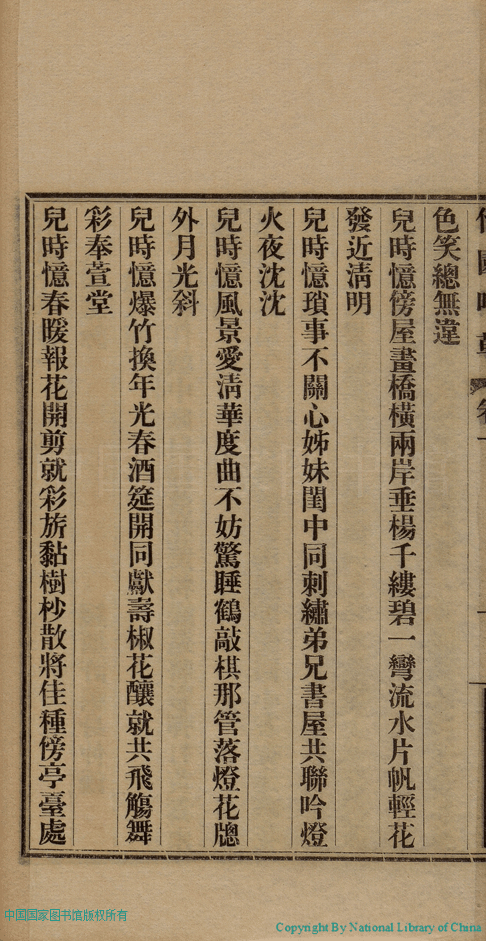 色笑總無違
兒時憶傍屋畫橋橫兩岸垂楊千縷碧一彎流水片帆輕花
發近淸明
兒時憶瑣事不關心姊妹閨中同刺繡弟兄書屋共聯吟燈
火夜沈沈
兒時憶風景愛淸華度曲不妨驚睡鶴敲棋那管落燈花牕
外月光斜
兒時憶爆竹換年光春酒筵開同獻壽椒花釀就共飛觴舞
彩奉萱堂
兒時憶春暖報花開剪就彩旂黏樹杪散將佳種傍亭臺處
中国国家图书馆版权所有
Copyright By National Library of China